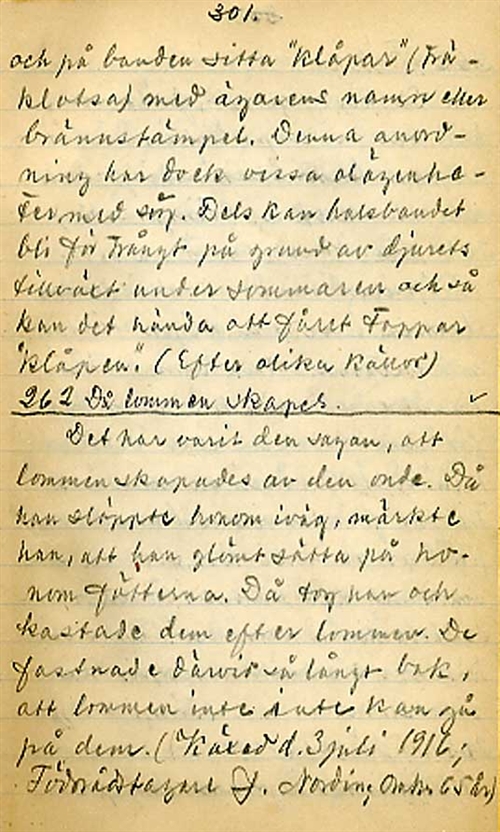 301.
och på banden sitta "klåpar" (trä-
klotsar) med ägarens namn eller
brännstämpel. Denna anord-
ning har dock vissa olägenhe-
ter med sig. Dels kan halsbandet
bli för trångt på grund av djurets
tillväxt under sommaren och så
kan det hända att fåret tappar
"klåpen". (Efter olika källor)
262 Då lommen skapels.
Det har varit den sagan, att
lommen skapades av den onde. Då
han släppte honom iväg, märkte
han, att han glömt sätta på ho-
nom fötterna. Då tog han och
kastade dem efter lommen. De
fastnade därvid så långt bak,
att lommen inte inte kan gå
på dem. (Käxed d. 3 juli 1916;
Födorådstagare J. Nordin, 65 år)